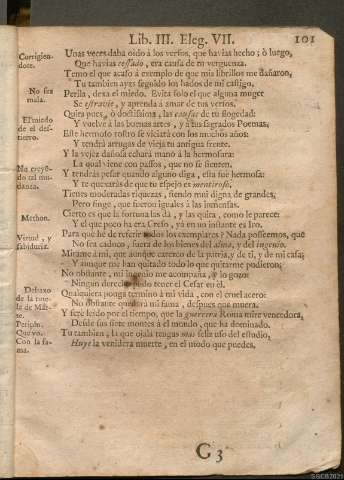 Lib. III. Eleg. VII. 101
Corrigiendote.
No sea mala.
El miedo de el destierro.
Na creyendo tal mudanza.
Methon.
Virtud, y sabiduria.
Debaxo de la tutela de Marte.
Perilla.
Que yo.
Con la fama.
Unas veces daba oìdo à los versos, que havias hecho; ò luego,
Que havias cessado, era causa de tu verguenza.
Temo el que acaso à exemplo de que mis librillos me dañaron,
Tu tambien ayas seguido los hados de mi castigo.
Perila, dexa el miedo. Evita solo el que alguna muger
Se estravie, y aprenda à amar de tus versos.
Quita pues, ò doctissima, las causas de tu floxedad:
Y vuelve à las buenas artes, y à tus sagrados Poemas,
Este hermoso rostro se viciarà con los muchos años:
Y tendrà arrugas de vieja tu antigua frente.
Y la vejèz dañosa echarà mano à la hermosura:
La qual viene con passos, que no se sienten.
Y tendràs pesar quando alguno diga, esta fue hermosa:
Y te quexaràs de que tu espejo es mentiroso.
Tienes moderadas riquezas, siendo mui digna de grandes,
Pero finge, que fueron iguales à las inmensas.
Cierto es que la fortuna las dà, y las quita, como le parece:
Y el que poco ha era Creso, yà en un instante es Iro.
Para què he de referir todos los exemplares? Nada posseemos, que
No sea caduco, fuera de los bienes del alma, y del ingenio.
Mirame à mi, que aunque carezco de la patria, y de ti, y de mi casa;
Y aunque me han quitado todo lo que quitarme pudieron;
No obstante, mi ingenio me acompaña, y lo gozo:
Ningun derecho pudo tener el Cesar en èl.
Qualquiera ponga termino à mi vida, con el cruel acero:
No obstante quedarà mi fama, despues que muera.
Y serè leido por el tiempo, que la guerrera Roma mire vencedora,
Desde sus siete montes à el mundo, que ha dominado.
Tu tambien, la que ojalà tengas mas feliz uso del estudio,
Huye la venidera muerte, en el modo que puedes.
G 3